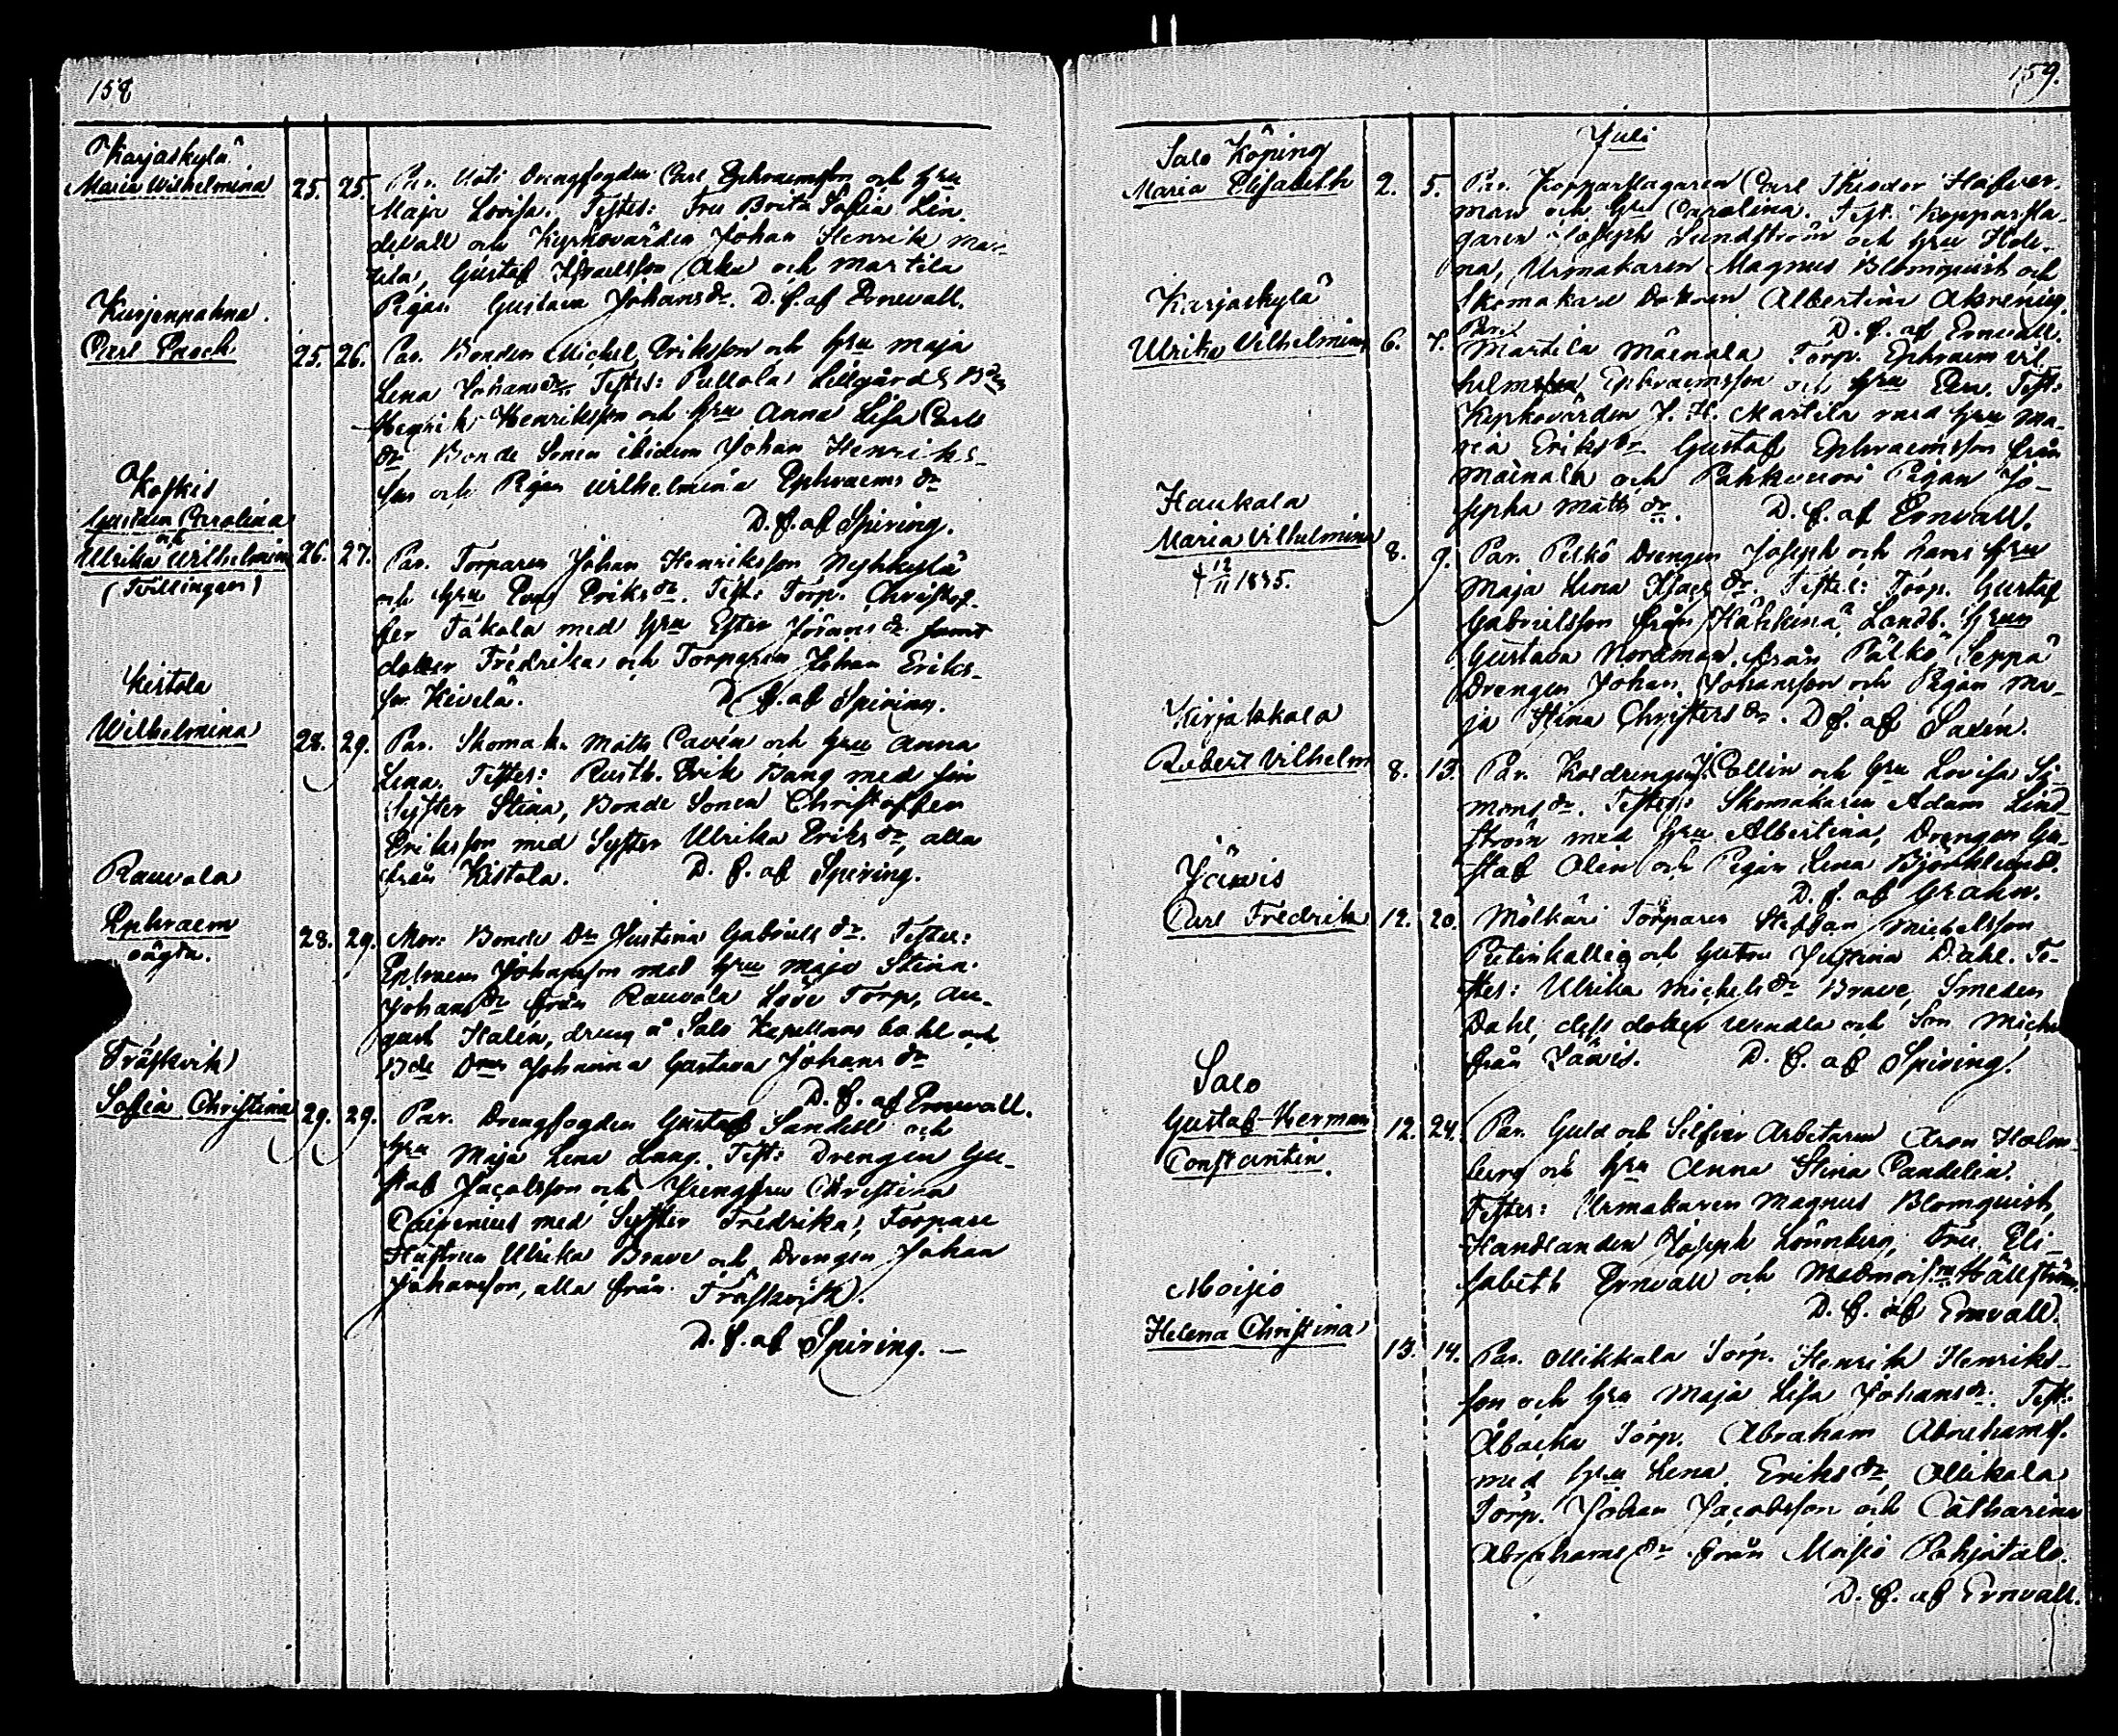 158
Karjaskylä
Maria Wilhelmina 25. 25. Par. Uoti Drengfogden Carl Ephraemsson och hru
Maja Lovisa. Testes: Fru Brita Sofia Lin-
devall och Kyrkovärden Johan Henrik Mar-
tila, Gustaf Israelsson och Martila
Pigan Gustava Johansdr. D. f. af Ernvall.
Kurjenpahna.
Carl Enoch 25. 26. Par. Bonden Michel Eriksson och hru Maja
Lena Johansdr. Testes: Pullola Lillgårds
Henrik Henriksson och hru Anna Lisa Carls
dr Bonde Sonen ibidem Johan Henriks-
son och Pigan Wilhelmina Ephraems dr
D. f. af Spiring.
Koskis
Gustava Carolina
och
Ulrika Wilhelmina 26. 27. Par. Torparen Johan Henriksson Nyhkylä
(Tvillingar)
och hru Eva Eriksdr. Test: Torp. Christof-
fer Takala med hru Ester Jöransdr samt
dotter Fredrika och Torparen Johan Eriks-
son Kivelä. D. f. af Spiring.
Kistola
Wilhelmina 28. 29. Par. Skomak. Matts Cavén och hru Anna
Lena. Testes: Rusth. Erik Bang med sin
Syster Stina, Bonde Sonen Christoffer
Eriksson med Syster Ulrika Eriksdr, alla
från Kistola. D. f. af Spiring.
Rauvola
Ephraem 28. 29. Mor: Bonde Dr Justina Gabriels dr. Testes:
oägta.
Ephraem Johansson med hru Maja Stina
Johansdr från Rauvola Torp, Au-
gust Halén, dreng å Salo Kapellans bohl och
Bde Johanna Gustava Johans dr
D. f. af Ernvall.
Träskvik
Sofia Christina 29. 29. Par. Drengfogden Gustaf Sandell och
hru Maja Lena Lang. Test: Drengen Gu-
staf Jacobsson och Jungfru Christina
Caipenius med Syster Fredrika, Torpare
Hustrun Ulrika Brave och Drengen Johan
Johansson, alla från Träskvik.
D. f. af Spiring.
159.
Juli
Salo Köping
Maria Elisabeth 2. 5. Par. Kopparslagaren Carl Theodor Hafver-
man och hru Carolina. Test. Kopparsla-
garen Joseph Sundström och hru Hele-
na, Urmakaren Magnus Blomquist och
Skomakare Dottren Albertina Abrening.
D. f. af Ernvall.
Karjaskylä
Ulrika Vilhelmina 6. 7. Par. Martila Mäenala Torp. Ephraem Vil-
helmsson Ephraemsson och hru Eva. Test:
Kyrkovärden J. H. Martila med hru Ma-
ria Eriksdr Gustaf Ephraemsson från
Mäinala och Pahkavuori Pigan Jo-
sepha Matts dr. D. f. af Ernvall.
Haukala
Maria Vilhelmina 8. 9. Par. Pelko Drengen Joseph och hans hru
† 12/11 1835.
Maja Lena Isacs dr. Testes: Torp. Gustaf
Gabrielsson från Hähkinä Landb. hrun
Gustava Nordman från Pälkö Seppä
Drengen Johan Johansson och Pigan Ma-
ja Stina Christersdr. D. f. af Saxén.
Kirjakkala
Robert Vilhelm 8. 13. Par. Koldrengen J. Collin och hru Lovisa Si-
monsdr. Testes: Skomakaren Adam Lind-
ström med hru Albertina, Drengen Gu-
staf Olin och Pigan Lena Björklund.
D. f. af Grahn.
Jäävis
Carl Fredrik 12. 20. Mölkäri Torparen Steffan Michelsson
Pietinkallio och hustru Justina Dahl. Te-
stes: Ulrika Michelsdr Brave, Smeden
Dahl, dess dotter Wendla och Son Michel
från Jäävis. D. f. af Spiring.
Salo
Gustaf Herman 12. 24. Par. Guld och Silfver Arbetaren Aron Holm-
Constantin.
berg och hru Anna Stina Pandelin.
Testes: Urmakaren Magnus Blomquist,
Handlanden Joseph Lönnberg, Fru Eli-
sabeth Ernvall och Hällström.
D. f. af Ernvall.
Moisio
Helena Christina 13. 14. Par. Ollikkala Torp. Henrik Henriks-
son och hru Maja Lisa Johansdr. Test:
Åbacka Torp. Abraham Abrahamss.
med hru Lena Eriksdr Ollikala
Torp. Johan Jacobsson och Catharina
Abrahamsdr från Moisio Pohjatalo.
D. f. af Ernvall.